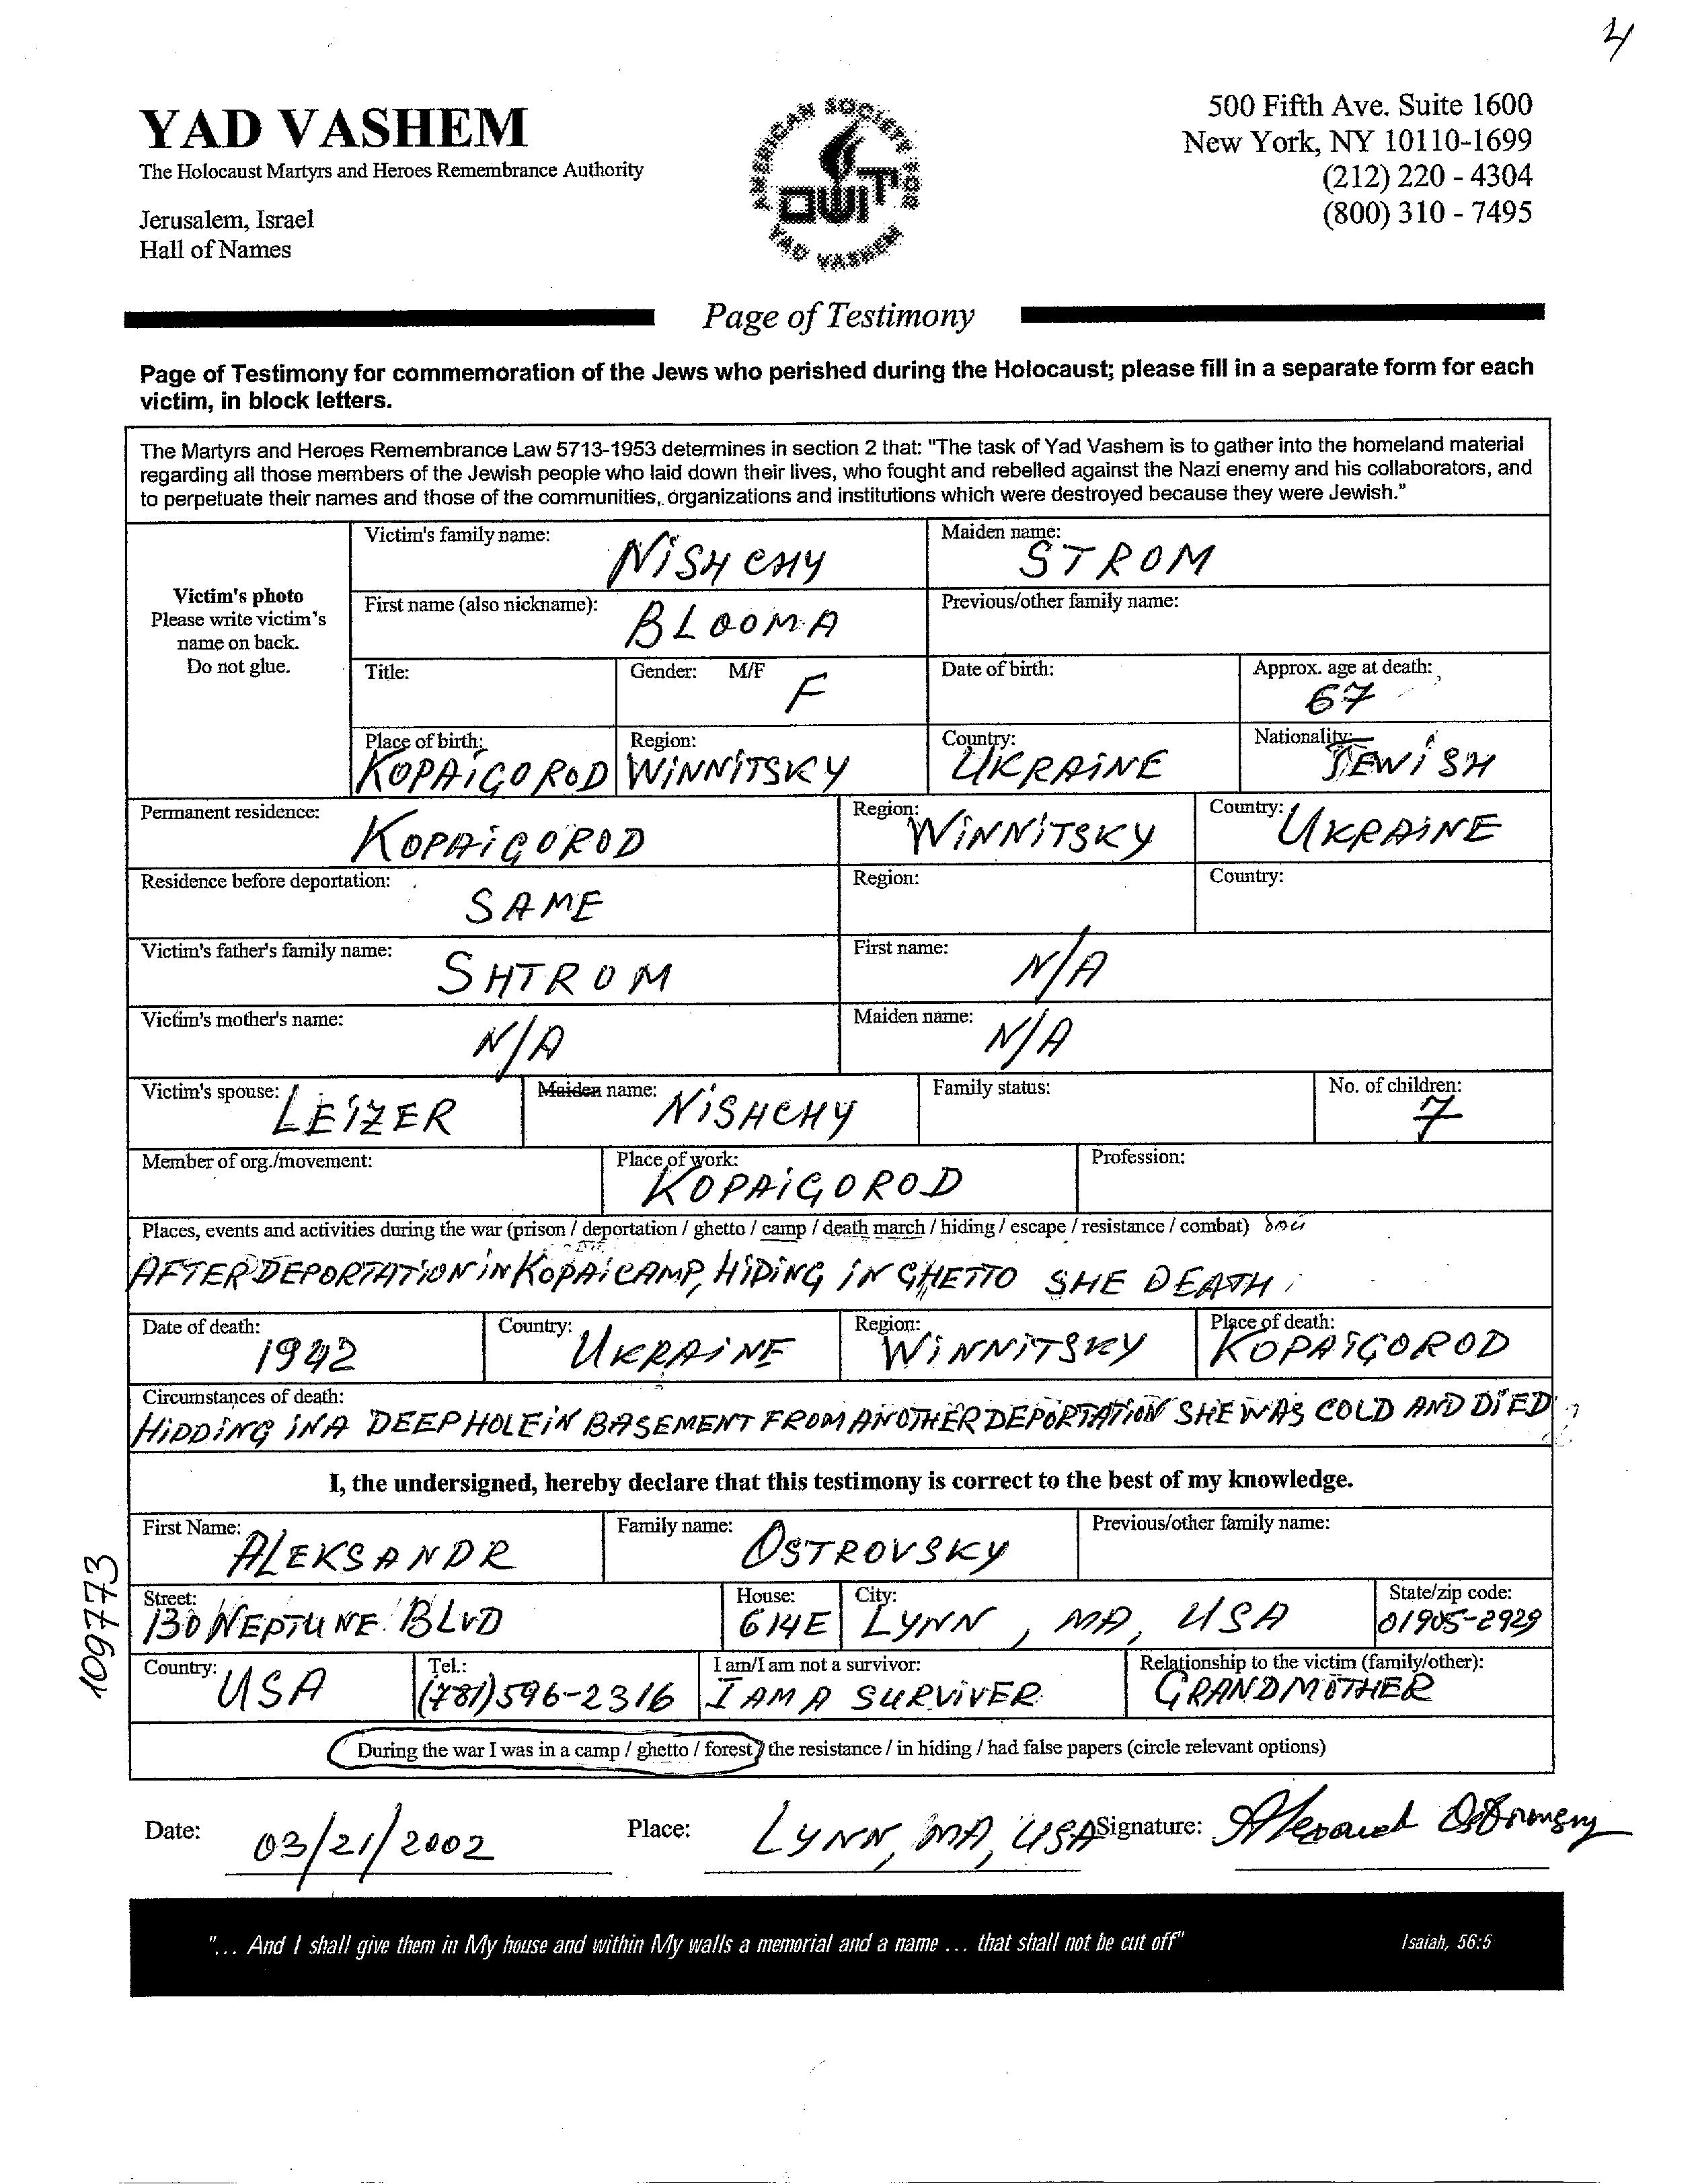 4
YAD VASHEM
The Holocaust Martyrs and Heroes Remembrance Authority
Jerusalem, Israel
Hall of Names
AMERICAN SOCIETY FOR
YAD VASHEM
500 Fifth Ave. Suite 1600
New York, NY 10110-1699
(212) 220 - 4304
(800) 310 - 7495
Page of Testimony
Page of Testimony for commemoration of the Jews who perished during the Holocaust; please fill in a separate form for each
victim, in block letters.
The Martyrs and Heroes Remembrance Law 5713-1953 determines in section 2 that: "The task of Yad Vashem is to gather into the homeland material
regarding all those members of the Jewish people who laid down their lives, who fought and rebelled against the Nazi enemy and his collaborators, and
to perpetuate their names and those of the communities, organizations and institutions which were destroyed because they were Jewish."
Victim's photo
Please write victim's
name on back.
Do not glue.
Victim's family name: NISHCHY Maiden name: STROM
First name (also nickname): BLOOMA Previous/other family name:
Title: Gender: M/F F Date of birth: Approx. age at death: 67
Place of birth: KOPAIGOROD Region: WINNITSKY Country: UKRAINE Nationality: JEWISH
Permanent residence: KOPAIGOROD Region: WINNITSKY Country: UKRAINE
Residence before deportation: SAME Region: Country:
Victim's father's family name: SHTROM First name: N/A
Victim's mother's name: N/A Maiden name: N/A
Victim's spouse: LEIZER Maiden name: NISHCHY Family status: No. of children: 7
Member of org./movement: Place of work: KOPAIGOROD Profession:
Places, events and activities during the war (prison / deportation / ghetto / camp / death march / hiding / escape / resistance / combat)
AFTER DEPORTATION IN KOPAI CAMP, HIDING IN GHETTO SHE DEATH
Date of death: 1942 Country: UKRAINE Region: WINNITSKY Place of death: KOPAIGOROD
Circumstances of death:
HIDDING IN A DEEP HOLE IN BASEMENT FROM ANOTHER DEPORTATION SHE WAS COLD AND DIED
I, the undersigned, hereby declare that this testimony is correct to the best of my knowledge.
First Name: ALEKSANDR Family name: OSTROVSKY Previous/other family name:
Street: 130 NEPTUNE BLVD House: 614E City: LYNN, MA, USA State/zip code: 01905-2929
Country: USA Tel.: (781) 596-2316 I am/I am not a survivor: I AM A SURVIVER Relationship to the victim (family/other): GRANDMOTHER
During the war I was in a camp / ghetto / forest / the resistance / in hiding / had false papers (circle relevant options)
109773
Date: 03/21/2002 Place: LYNN, MA, USA Signature:
"... And I shall give them in My house and within My walls a memorial and a name ... that shall not be cut off" Isaiah, 56:5